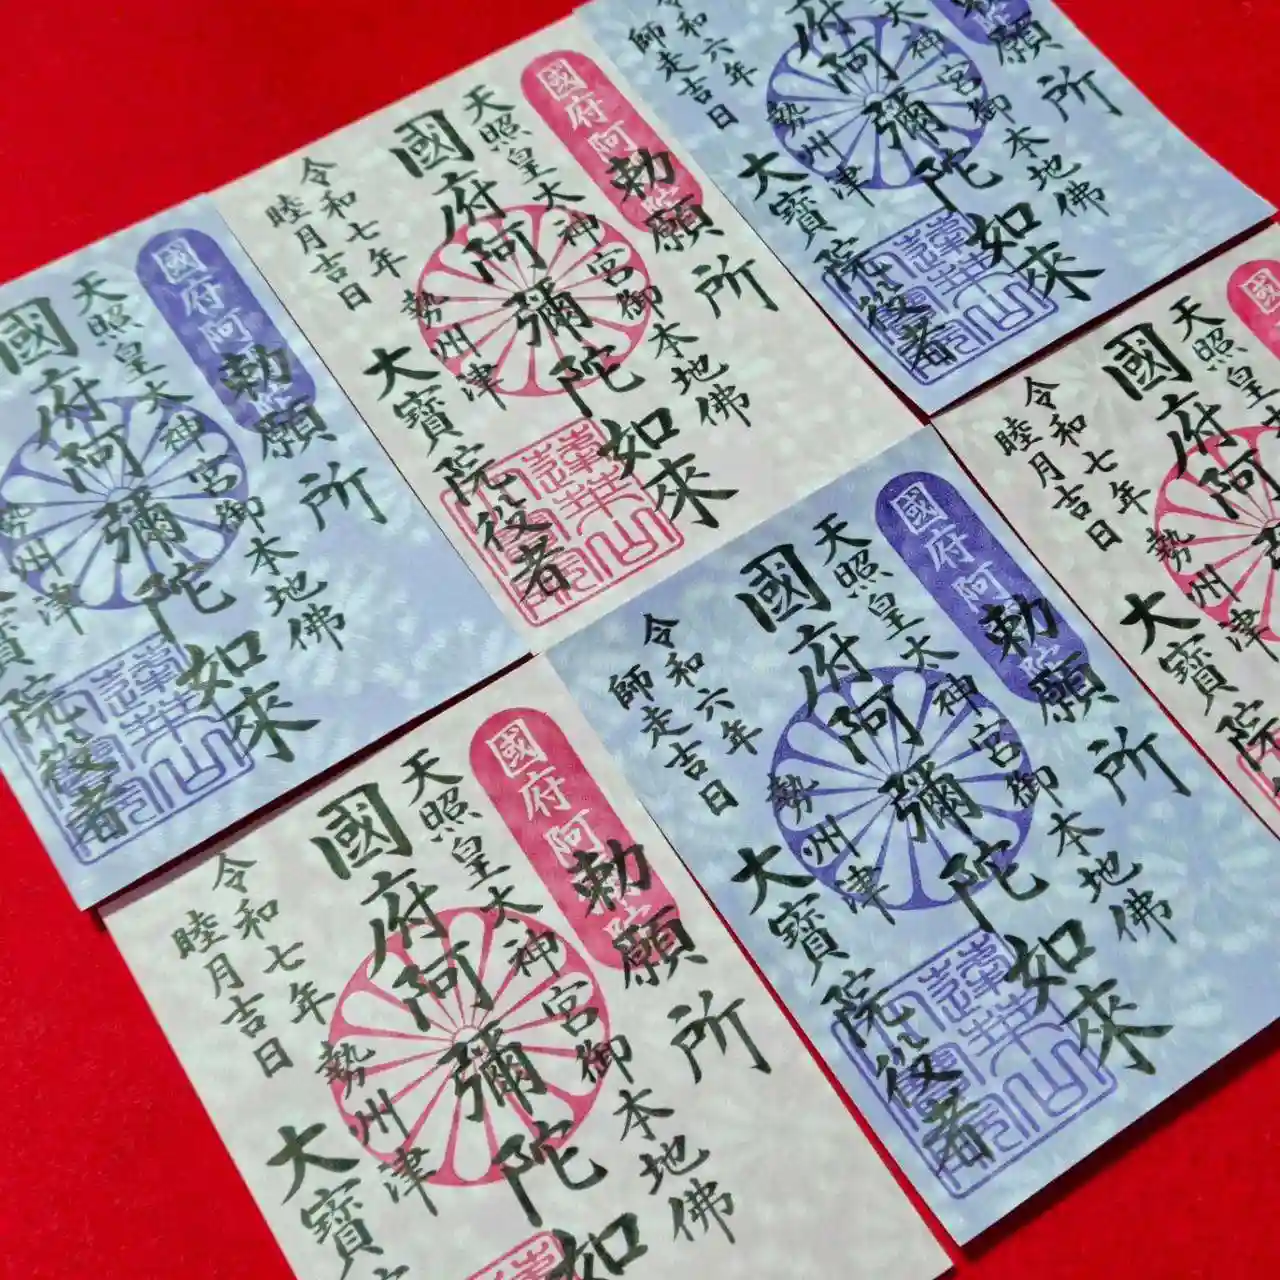 國府阿
勅願所
天照皇太神宮御本地佛
國府阿彌陀如來
勢州津
大寶院役者
國府阿
勅願所
天照皇太神宮御本地佛
國府阿彌陀如來
令和七年
睦月吉日
勢州津
大寶院役者
願所
太神宮御本地佛
府阿彌陀如來
令和六年
師走吉日
勢州津
大寶院役者
國府阿
勅願所
天照皇太神宮御本地佛
國府阿彌陀如
令和七年
睦月吉日
勢州津
大寶
國府阿
勅願所
天照皇太神宮御本地佛
國府阿彌陀如來
令和六年
師走吉日
勢州津
大寶院役者
國
天照皇
國府阿
令和七年
睦月吉日
勢州津
大寶院